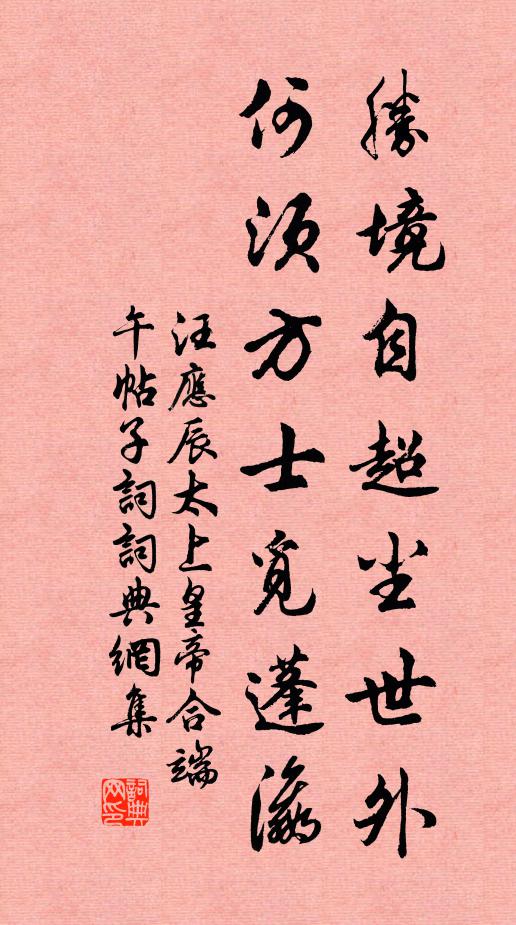 勝境自超尘世外
何須方士覓蓬瀛
汪應辰太上皇帝合端
午帖子詞詞典網集
詞典网印